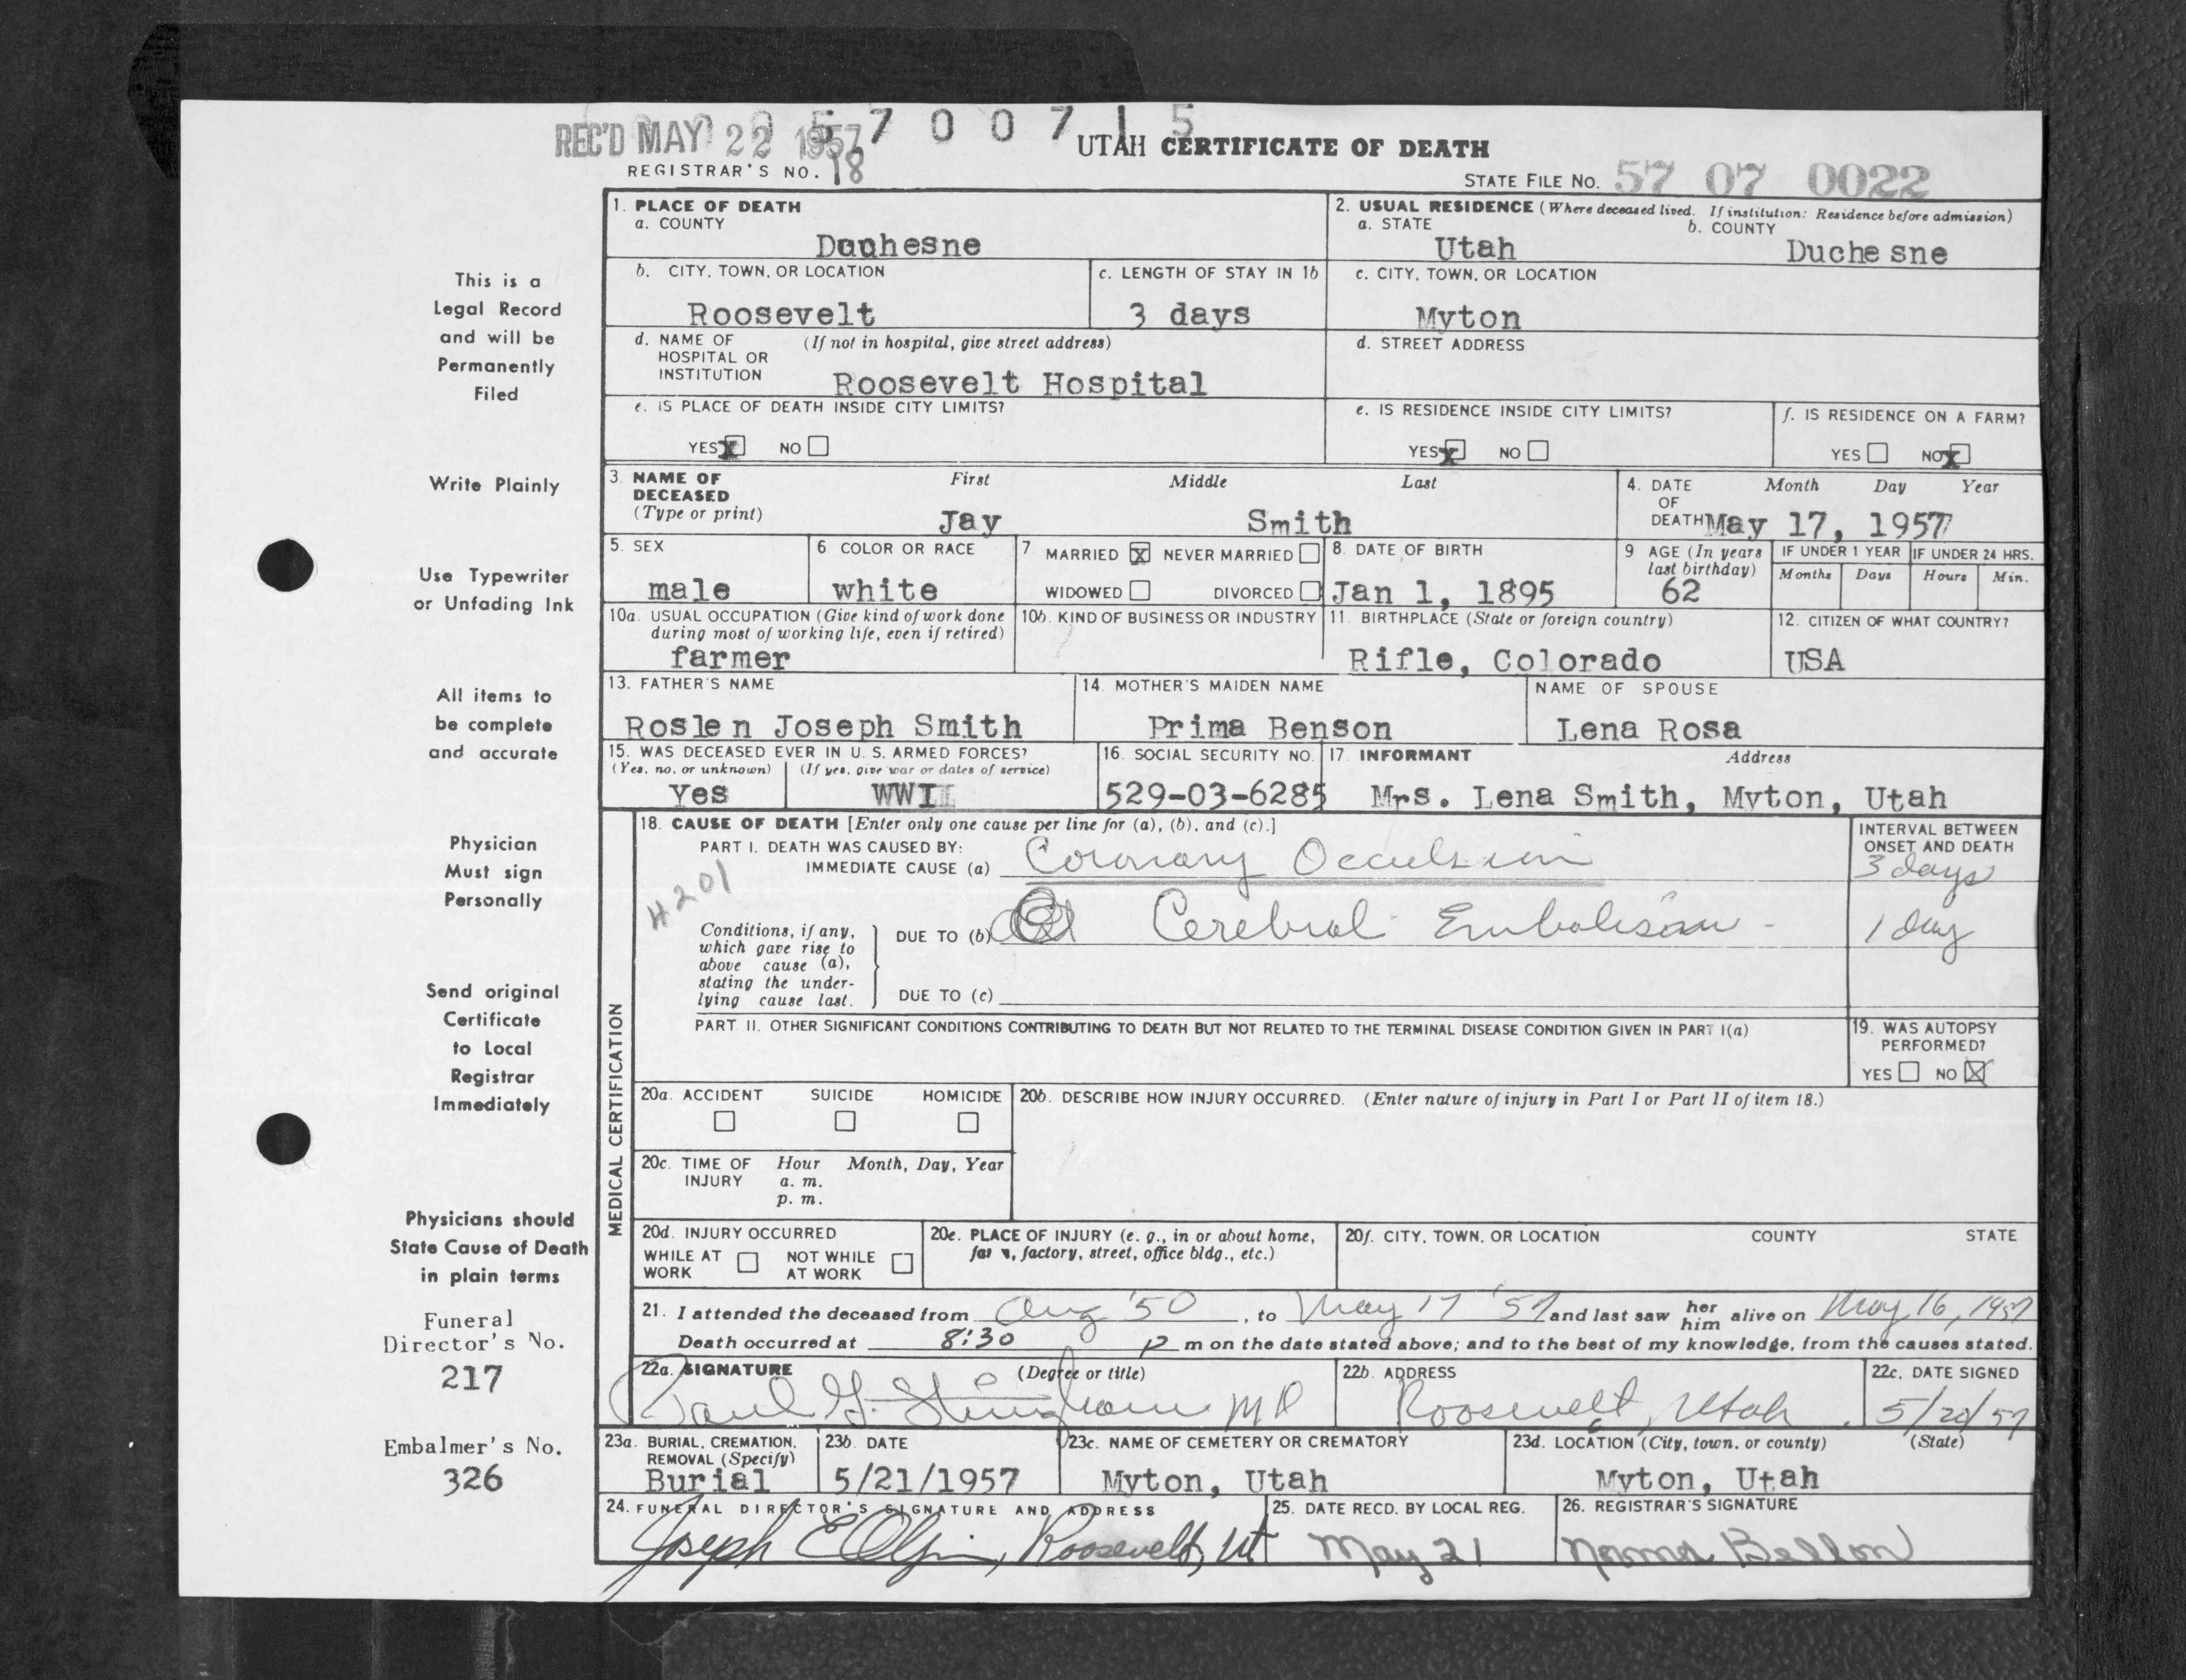 REC'D MAY 22 1957
5 7 0 0 7 1 5
UTAH CERTIFICATE OF DEATH
REGISTRAR'S NO. 18
STATE FILE NO. 57 07 0022
This is a
Legal Record
and will be
Permanently
Filed
Write Plainly
Use Typewriter
or Unfading Ink
All items to
be complete
and accurate
Physician
Must sign
Personally
Send original
Certificate
to Local
Registrar
Immediately
Physicians should
State Cause of Death
in plain terms
Funeral
Director's No.
217
Embalmer's No.
326
1. PLACE OF DEATH
a. COUNTY
Duchesne
2. USUAL RESIDENCE (Where deceased lived. If institution: Residence before admission)
a. STATE
Utah
b. COUNTY
Duchesne
b. CITY, TOWN, OR LOCATION
Roosevelt
c. LENGTH OF STAY IN 1b
3 days
c. CITY, TOWN, OR LOCATION
Myton
d. NAME OF (If not in hospital, give street address)
HOSPITAL OR
INSTITUTION
Roosevelt Hospital
d. STREET ADDRESS
e. IS PLACE OF DEATH INSIDE CITY LIMITS?
YES X NO
e. IS RESIDENCE INSIDE CITY LIMITS?
YES X NO
f. IS RESIDENCE ON A FARM?
YES NO X
3. NAME OF
DECEASED
(Type or print)
First Middle Last
Jay Smith
4. DATE
OF
DEATH
Month Day Year
May 17, 1957
5. SEX
male
6 COLOR OR RACE
white
7 MARRIED X NEVER MARRIED
WIDOWED DIVORCED
8. DATE OF BIRTH
Jan 1, 1895
9 AGE (In years
last birthday)
62
IF UNDER 1 YEAR
Months Days
IF UNDER 24 HRS.
Hours Min.
10a. USUAL OCCUPATION (Give kind of work done
during most of working life, even if retired)
farmer
10b. KIND OF BUSINESS OR INDUSTRY
11. BIRTHPLACE (State or foreign country)
Rifle, Colorado
12. CITIZEN OF WHAT COUNTRY?
USA
13. FATHER'S NAME
Roslen Joseph Smith
14. MOTHER'S MAIDEN NAME
Prima Benson
NAME OF SPOUSE
Lena Rosa
15. WAS DECEASED EVER IN U. S. ARMED FORCES?
(Yes, no, or unknown) (If yes, give war or dates of service)
Yes WWI
16. SOCIAL SECURITY NO.
529-03-6285
17. INFORMANT Address
Mrs. Lena Smith, Myton, Utah
MEDICAL CERTIFICATION
18. CAUSE OF DEATH [Enter only one cause per line for (a), (b), and (c).]
PART I. DEATH WAS CAUSED BY:
IMMEDIATE CAUSE (a) Coronary Occulsion
INTERVAL BETWEEN
ONSET AND DEATH
3 days
4201
Conditions, if any,
which gave rise to
above cause (a),
stating the under-
lying cause last.
DUE TO (b) Cerebral Embolism
1 day
DUE TO (c)
PART II. OTHER SIGNIFICANT CONDITIONS CONTRIBUTING TO DEATH BUT NOT RELATED TO THE TERMINAL DISEASE CONDITION GIVEN IN PART I(a)
19. WAS AUTOPSY
PERFORMED?
YES NO X
20a. ACCIDENT SUICIDE HOMICIDE
20b. DESCRIBE HOW INJURY OCCURRED. (Enter nature of injury in Part I or Part II of item 18.)
20c. TIME OF Hour Month, Day, Year
INJURY a. m.
p. m.
20d. INJURY OCCURRED
WHILE AT NOT WHILE
WORK AT WORK
20e. PLACE OF INJURY (e. g., in or about home,
farm, factory, street, office bldg., etc.)
20f. CITY, TOWN, OR LOCATION COUNTY STATE
21. I attended the deceased from Aug '50, to May 17 '57 and last saw her him alive on May 16, 1957
Death occurred at 8:30 p m on the date stated above; and to the best of my knowledge, from the causes stated.
22a. SIGNATURE (Degree or title)
Paul G. Stringham MD
22b. ADDRESS
Roosevelt, Utah
22c. DATE SIGNED
5/20/57
23a. BURIAL, CREMATION,
REMOVAL (Specify)
Burial
23b. DATE
5/21/1957
23c. NAME OF CEMETERY OR CREMATORY
Myton, Utah
23d. LOCATION (City, town, or county) (State)
Myton, Utah
24. FUNERAL DIRECTOR'S SIGNATURE AND ADDRESS
Joseph E Olpin, Roosevelt, Ut
25. DATE RECD. BY LOCAL REG.
May 21
26. REGISTRAR'S SIGNATURE
Norma Bellon